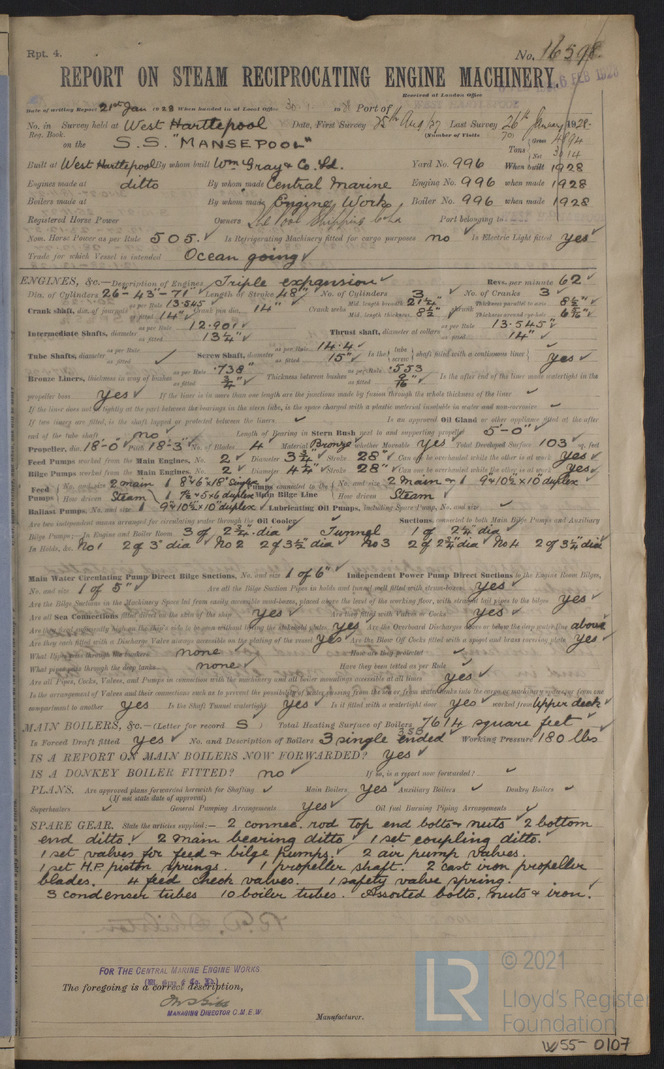 Rpt. 4.
No. 16598
REPORT ON STEAM RECIPROCATING ENGINE MACHINERY.
Received at London Office FEB 1928
Date of writing Report 21st Jan 1928 When handed in at Local Office Port of
No. in Survey held at West Hartlepool Date, First Survey 25th Aug 27 Last Survey 26th January 1928
Reg. Book. (Number of Visits 70)
on the S.S. "MANSEPOOL" Tons Gross 4894 Net 3014
Built at West Hartlepool By whom built Wm Gray & Co. Ld. Yard No. 996 When built 1928
Engines made at ditto By whom made Central Marine Engine No. 996 when made 1928
Boilers made at By whom made Engine Works Boiler No. 996 when made 1928
Registered Horse Power Owners The Pool Shipping Co Ld Port belonging to
Nom. Horse Power as per Rule 505. Is Refrigerating Machinery fitted for cargo purposes no Is Electric Light fitted yes
Trade for which Vessel is intended Ocean going
ENGINES, &c.—Description of Engines Triple expansion Revs. per minute 62
Dia. of Cylinders 26 - 43 - 71 Length of Stroke 48" No. of Cylinders 3 No. of Cranks 3
Crank shaft, dia. of journals as per Rule 13.545 as fitted 14" Crank pin dia. 14" Crank webs Mid. length breadth 21¼" Mid. length thickness 8½" Thickness parallel to axis 8½" Thickness around eye hole 6⅞"
Intermediate Shafts, diameter as per Rule 12.901 as fitted 13¼" Thrust shaft, diameter at collars as per Rule 13.545" as fitted 14"
Tube Shafts, diameter as per Rule as fitted Screw Shaft, diameter as per Rule 14.4 as fitted 15" Is the tube screw shaft fitted with a continuous liner yes
Bronze Liners, thickness in way of bushes as per Rule .738" as fitted ¾" Thickness between bushes as per Rule .553 as fitted 9/16" Is the after end of the liner made watertight in the
propeller boss yes If the liner is in more than one length are the joints made by fusion through the whole thickness of the liner
If the liner does not fit tightly at the part between the bearings in the stern tube, is the space charged with a plastic material insoluble in water and non-corrosive
If two liners are fitted, is the shaft lapped or protected between the liners Is an approved Oil Gland or other appliance fitted at the after
end of the tube shaft no Length of Bearing in Stern Bush next to and supporting propeller 5'-0"
Propeller, dia. 18'-0" Pitch 18'-3" No. of Blades 4 Material Bronze whether Moveable yes Total Developed Surface 103 sq. feet
Feed Pumps worked from the Main Engines, No. 2 Diameter 3¾" Stroke 28" Can one be overhauled while the other is at work yes
Bilge Pumps worked from the Main Engines, No. 2 Diameter 4½" Stroke 28" Can one be overhauled while the other is at work yes
Feed Pumps No. and size 2 main & 1 How driven Steam Pumps connected to the Main Bilge Line No. and size 2 Main & 1 9 x 10½ x 10" duplex How driven Steam
Ballast Pumps, No. and size 1 9 x 10½ x 10" duplex Lubricating Oil Pumps, including Spare Pump, No. and size
Are two independent means arranged for circulating water through the Oil Cooler Suctions, connected to both Main Bilge Pumps and Auxiliary
Bilge Pumps;—In Engine and Boiler Room 3 of 2¾" dia Tunnel 1 of 2¼" dia
In Holds, &c. No 1 2 of 3" dia No 2 2 of 3½" dia No 3 2 of 2¾" dia No 4 2 of 3¼" dia
Main Water Circulating Pump Direct Bilge Suctions, No. and size 1 of 6" Independent Power Pump Direct Suctions to the Engine Room Bilges,
No. and size 1 of 5" Are all the Bilge Suction Pipes in holds and tunnel well fitted with strum-boxes yes
Are the Bilge Suctions in the Machinery Space led from easily accessible mud-boxes, placed above the level of the working floor, with straight tail pipes to the bilges yes
Are all Sea Connections yes Are they fitted with Valves or Cocks yes
yes Are the Overboard Discharges above or below the deep water line above
Are they each fitted with a Discharge Valve always accessible on the plating of the vessel yes Are the Blow Off Cocks fitted with a spigot and brass covering plate yes
What pipes pass through the bunkers none How are they protected
What pipes pass through the deep tanks none Have they been tested as per Rule
Are all Pipes, Cocks, Valves, and Pumps in connection with the machinery and all boiler mountings accessible at all times yes
Is the arrangement of Valves and their connections such as to prevent the possibility of water passing from
compartment to another yes Is the Shaft Tunnel watertight yes Is it fitted with a watertight door yes worked from Upper deck
MAIN BOILERS, &c.—(Letter for record S) Total Heating Surface of Boilers 7614 square feet
Is Forced Draft fitted yes No. and Description of Boilers 3 single ended 3SB Working Pressure 180 lbs
IS A REPORT ON MAIN BOILERS NOW FORWARDED? yes
IS A DONKEY BOILER FITTED? no If so, is a report now forwarded?
PLANS. Are approved plans forwarded herewith for Shafting Main Boilers yes Auxiliary Boilers Donkey Boilers
(If not state date of approval)
Superheaters General Pumping Arrangements yes Oil fuel Burning Piping Arrangements
SPARE GEAR. State the articles supplied:— 2 connec. rod top end bolts & nuts 2 bottom
end ditto. 2 main bearing ditto 1 set coupling ditto.
1 set valves for feed & bilge pumps. 2 air pump valves.
1 set H.P. piston springs. 1 propeller shaft. 2 cast iron propeller
blades. 4 feed check valves. 1 safety valve spring.
3 condenser tubes 10 boiler tubes. Assorted bolts, nuts & iron.
FOR THE CENTRAL MARINE ENGINE WORKS
The foregoing is a correct description,
MANAGING DIRECTOR C.M.E.W.
Manufacturer.
LR
© 2021
Lloyd's Register
Foundation
W55-0107